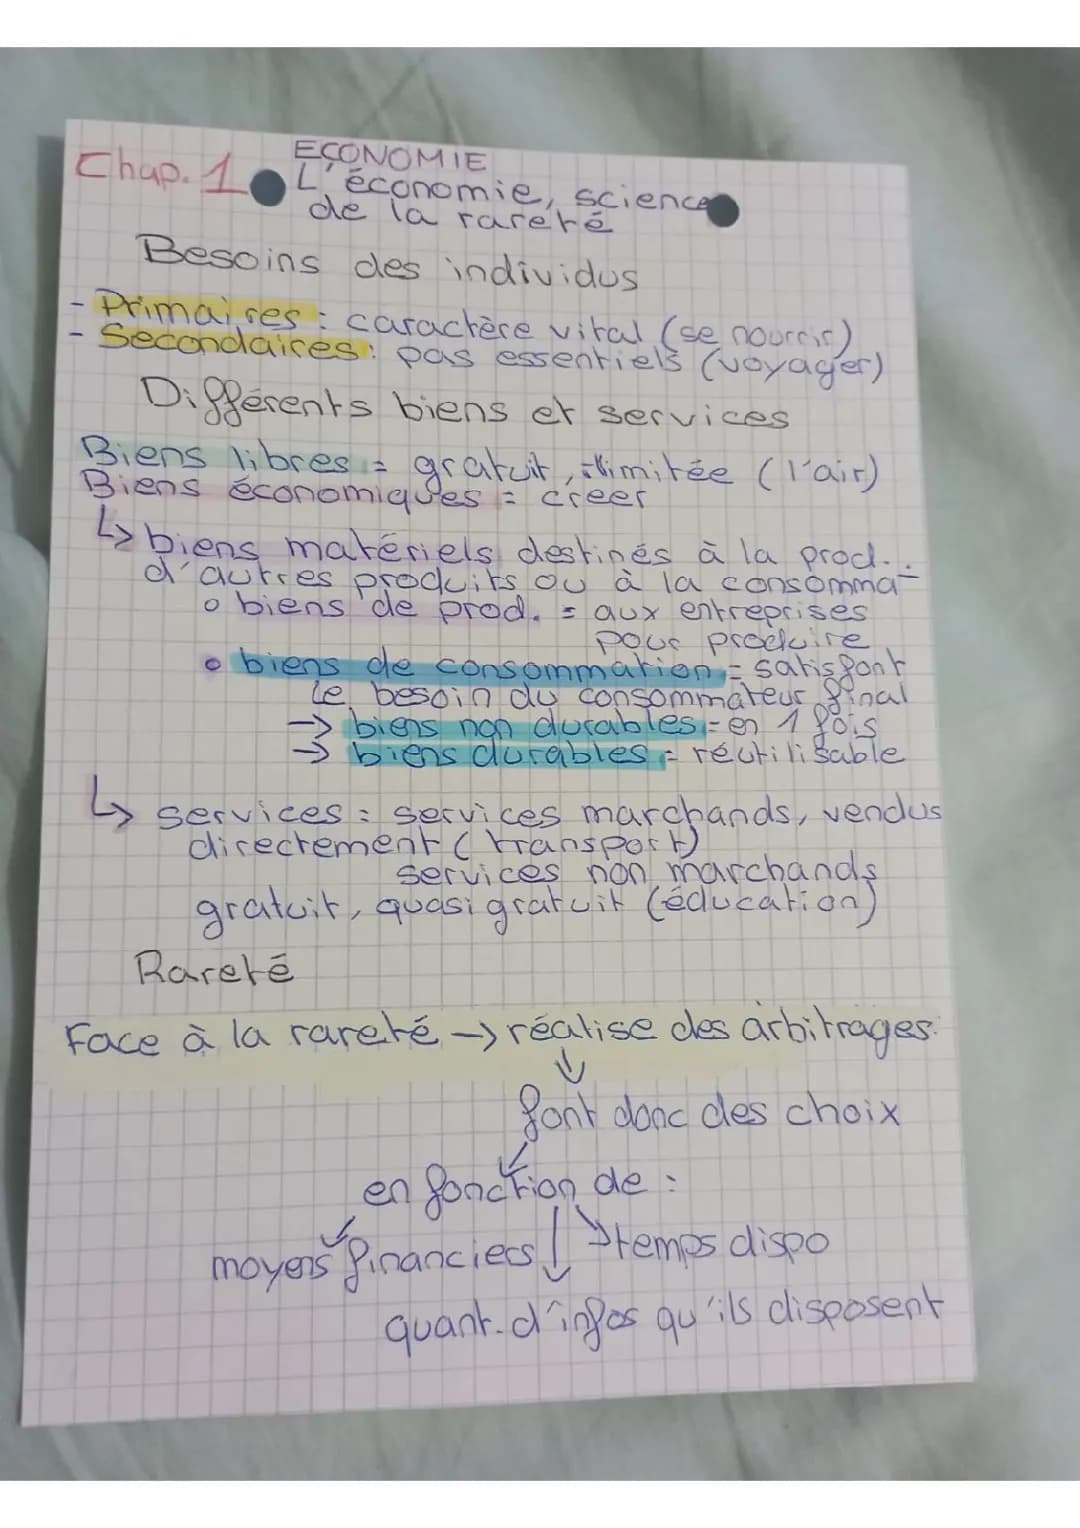 Chap. 1
ECONOMIE
L'économie, science
de la rareté
Besoins des individus
- Primaires : caractère vital (se nourrir)
- Secondaires : pas essentiels (voyager)
Différents biens et services
Biens libres = gratuit, illimitée (l'air)
Biens économiques = creer
↳ biens matériels destinés à la prod.
d'autres produits ou à la consomma-
o biens de prod. = aux entreprises
pour produire
• biens de consommation = satisfont
le besoin du consommateur final
→ biens non durables = en 1 fois
→ biens durables = réutilisable
↳ services : services marchands, vendus
directement (transport)
services non marchands
gratuit, quasi gratuit (éducation)
Rareté
Face à la rareté → réalise des arbitrages.
↓
font donc des choix
↙
en fonction de :
↙ moyens financiers ↓ ↘ temps dispo
quant. d'infos qu'ils disposent